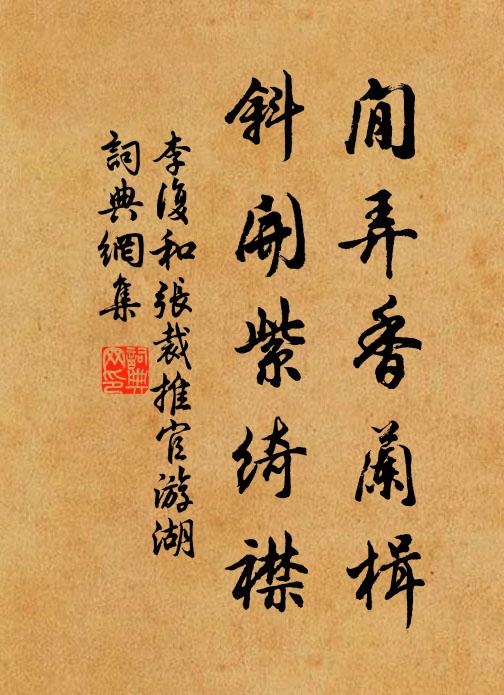 閒弄香蘭楫
斜開紫綺襟
李復和張裁推官游湖
詞典網集
詞典网印